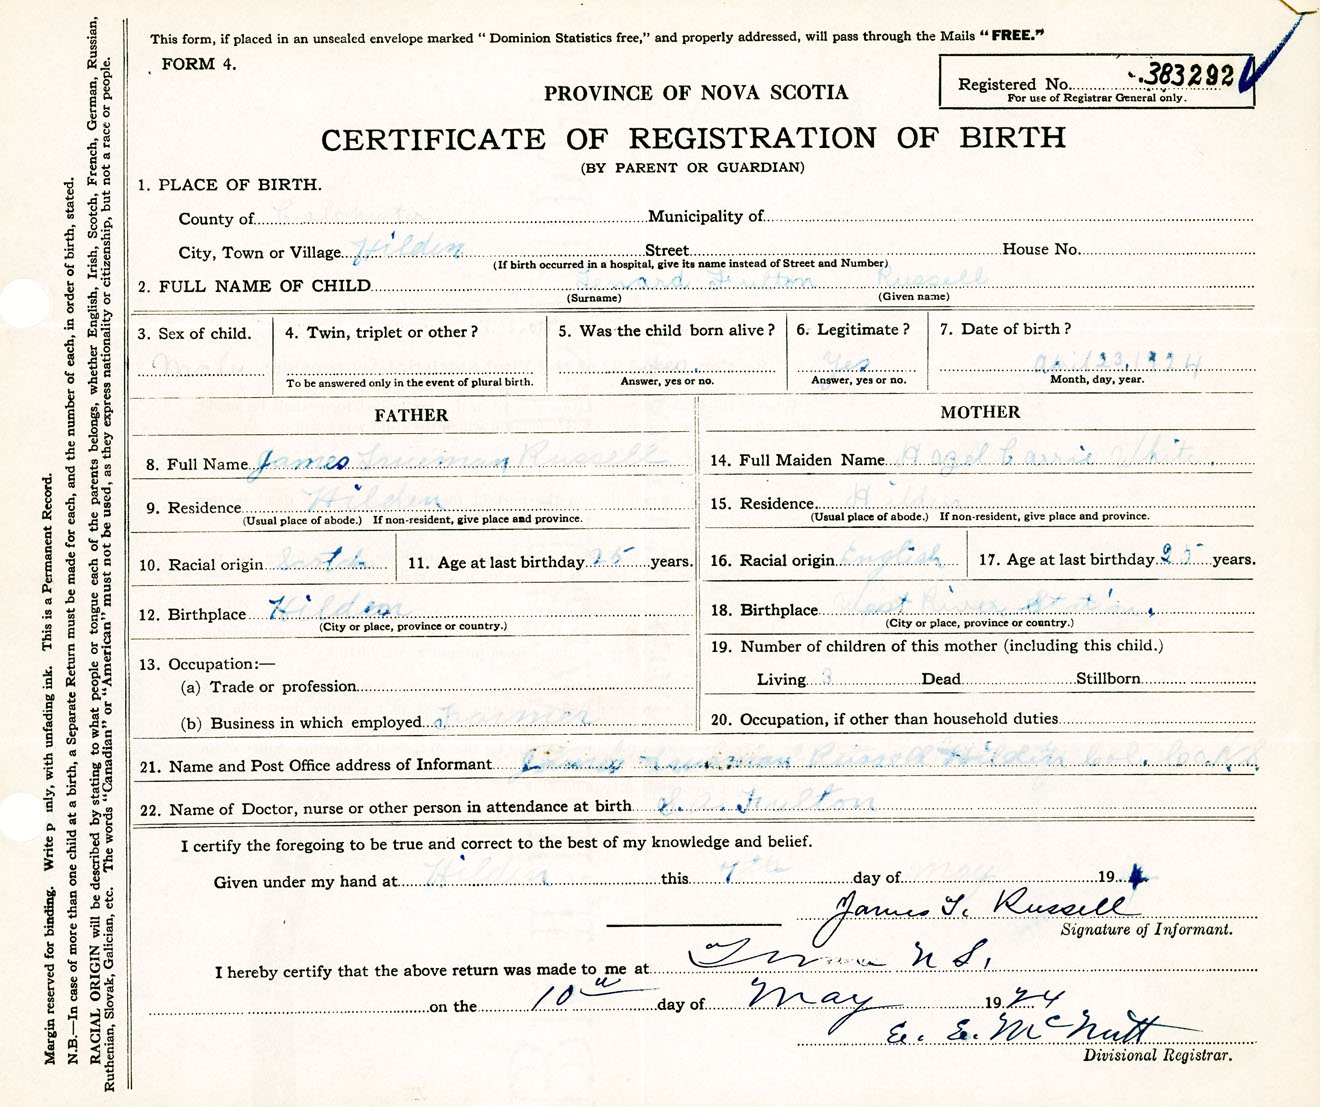 This form, if placed in an unsealed envelope marked “ Dominion Statistics free,” and properly addressed, will pass through the Mails “ FREE.”
FORM 4.
Registered No. 383292
For use of Registrar General only.
PROVINCE OF NOVA SCOTIA
CERTIFICATE OF REGISTRATION OF BIRTH
(BY PARENT OR GUARDIAN)
1. PLACE OF BIRTH.
County of Municipality of
City, Town or Village Hilden Street House No.
(If birth occurred in a hospital, give its name instead of Street and Number)
2. FULL NAME OF CHILD Fulton Russell
(Surname) (Given name)
3. Sex of child. 4. Twin, triplet or other ? 5. Was the child born alive ? 6. Legitimate ? 7. Date of birth ?
Male Yes April 23, 1924
To be answered only in the event of plural birth. Answer, yes or no. Answer, yes or no. Month, day, year.
FATHER MOTHER
8. Full Name James Trueman Russell
14. Full Maiden Name Hazel Carrie White.
9. Residence Hilden
(Usual place of abode.) If non-resident, give place and province.
15. Residence Hilden
(Usual place of abode.) If non-resident, give place and province.
10. Racial origin Scotch 11. Age at last birthday 25 years.
16. Racial origin English 17. Age at last birthday 25 years.
12. Birthplace Hilden
(City or place, province or country.)
18. Birthplace West River Station.
(City or place, province or country.)
13. Occupation:—
(a) Trade or profession
(b) Business in which employed Farmer
19. Number of children of this mother (including this child.)
Living 3 Dead Stillborn
20. Occupation, if other than household duties
21. Name and Post Office address of Informant James Trueman Russell Hilden Col. Co. N.S.
22. Name of Doctor, nurse or other person in attendance at birth Fulton
I certify the foregoing to be true and correct to the best of my knowledge and belief.
Given under my hand at Hilden this 7th day of May 19 4
James T. Russell
Signature of Informant.
I hereby certify that the above return was made to me at Truro N S.
on the 10th day of May 1924
E. E. McNutt
Divisional Registrar.
Margin reserved for binding. Write p mly, with unfading ink. This is a Permanent Record.
N.B.—In case of more than one child at a birth, a Separate Return must be made for each, and the number of each, in order of birth, stated.
RACIAL ORIGIN will be described by stating to what people or tongue each of the parents belongs, whether English, Irish, Scotch, French, German, Russian,
Ruthenian, Slovak, Galician, etc. The words “Canadian” or “American” must not be used, as they express nationality or citizenship, but not a race or people.